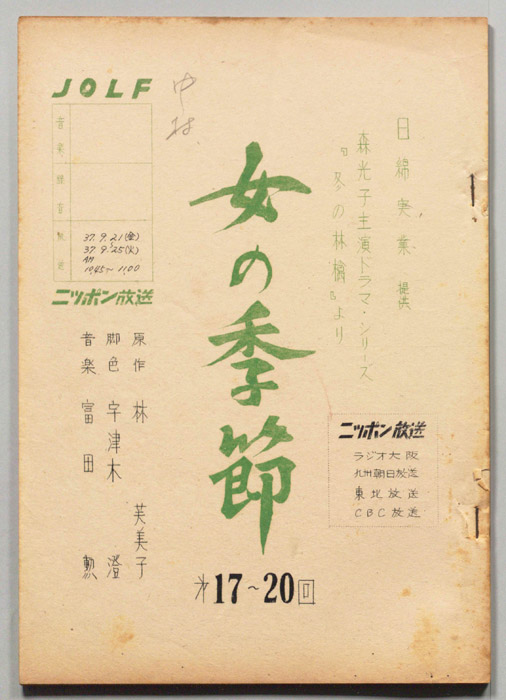 日綿実業 提供
森光子主演ドラマ・シリーズ
『冬の林檎』より
女の季節
才17~20回
JOLF
中村
音楽
録音
放送
37. 9. 21(金)
37. 9. 25(火)
AM
10.45~11.00
ニッポン放送
原作 林 芙美子
脚色 宇津木 澄
音楽 富田 勲
ニッポン放送
ラジオ大阪
九州朝日放送
東北放送
CBC放送